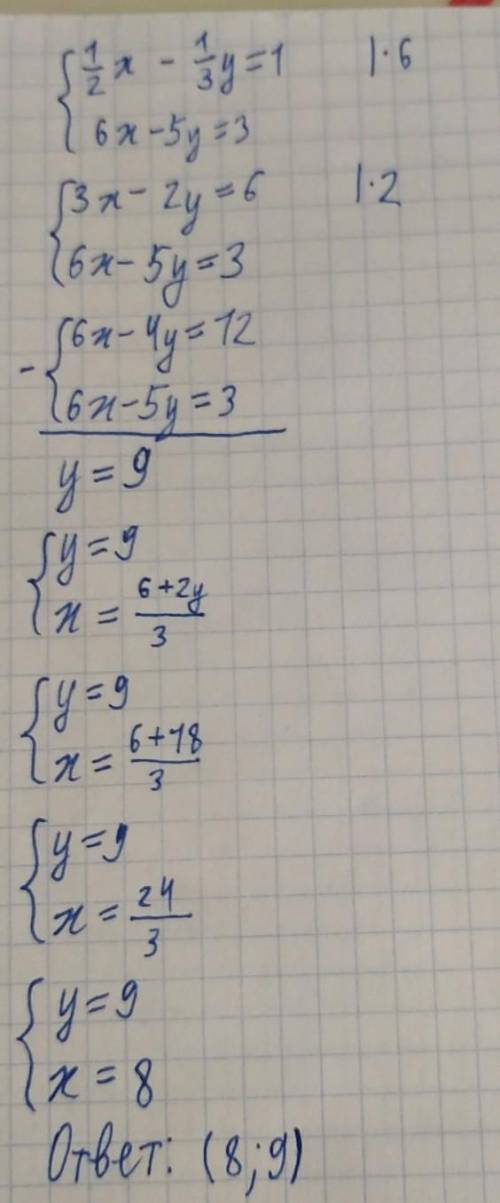 1/2 x - 1/3 y = 1 |·6
6x - 5y = 3
3x - 2y = 6 |·2
6x - 5y = 3
- 6x - 4y = 12
6x - 5y = 3
y = 9
y = 9
x = 6+2y/3
y = 9
x = 6+18/3
y = 9
x = 24/3
y = 9
x = 8
Ответ: (8;9)